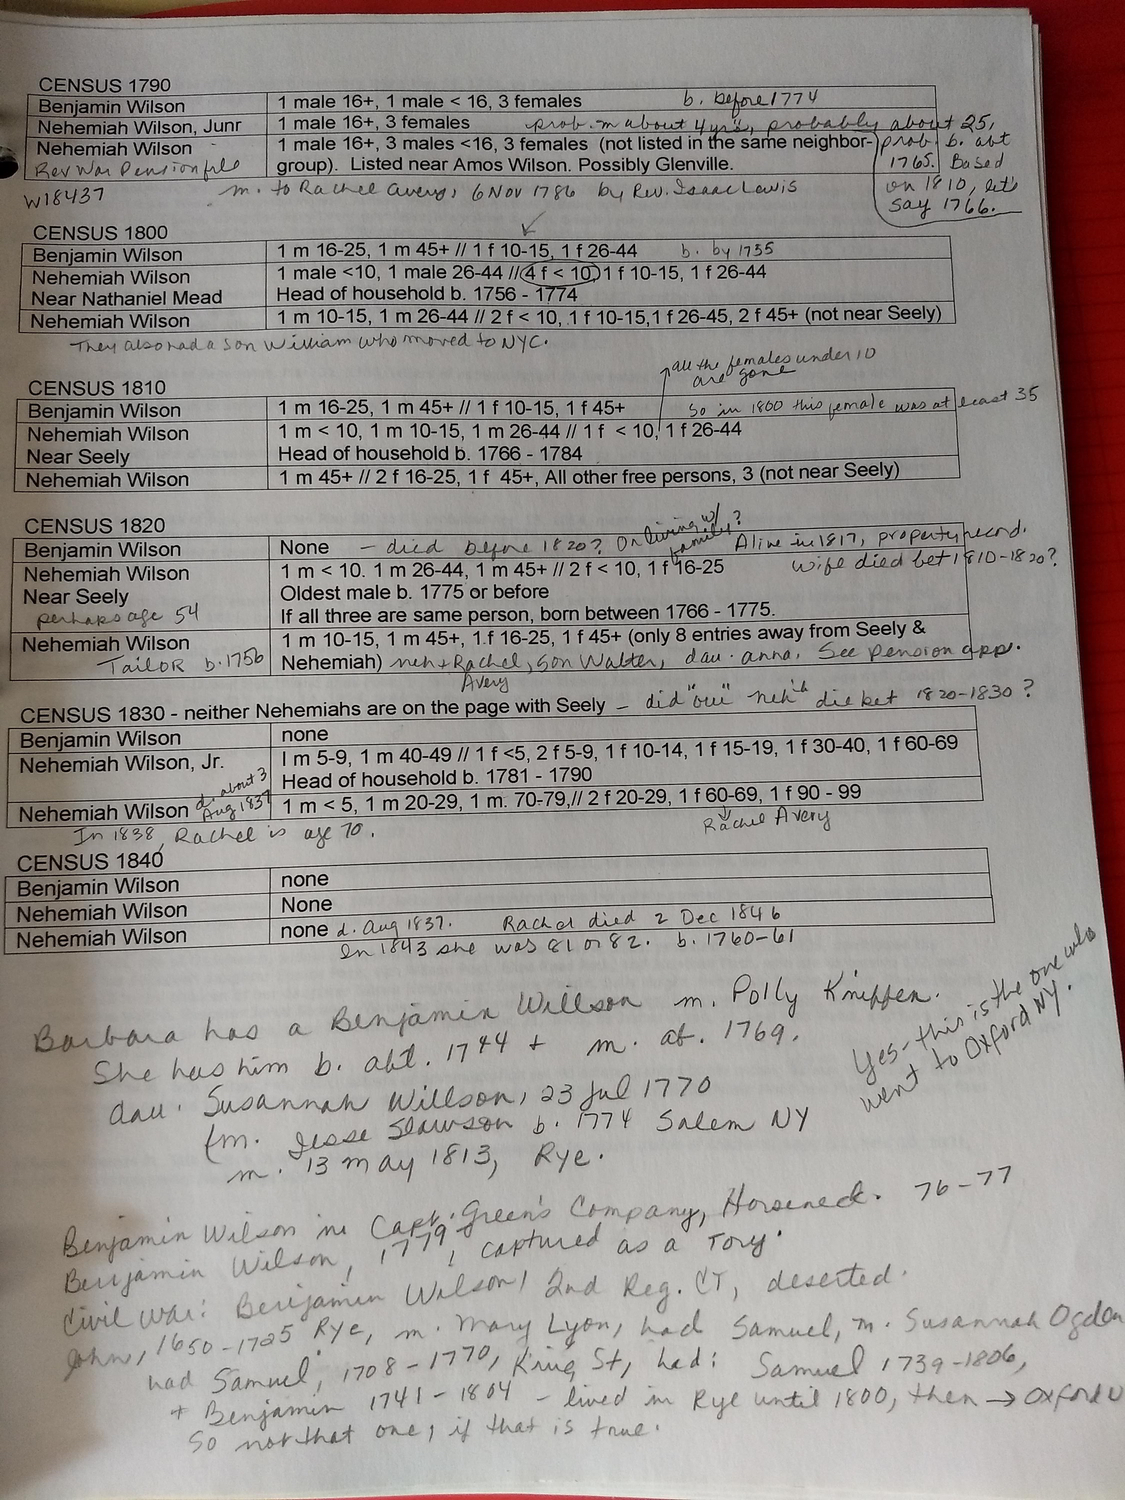 CENSUS 1790
Benjamin Wilson 1 male 16+, 1 male < 16, 3 females b. before 1774
Nehemiah Wilson, Junr 1 male 16+, 3 females prob. m about 4 yrs, probably about 25,
Nehemiah Wilson 1 male 16+, 3 males <16, 3 females (not listed in the same neighbor- prob. b. abt
Rev War Pension file group). Listed near Amos Wilson. Possibly Glenville. 1765. Based
W18437 m. to Rachel Avery, 6 Nov 1786 by Rev. Isaac Lewis on 1810, let's
say 1766.
CENSUS 1800
Benjamin Wilson 1 m 16-25, 1 m 45+ // 1 f 10-15, 1 f 26-44 b. by 1735
Nehemiah Wilson 1 male <10, 1 male 26-44 // 4 f < 10, 1 f 10-15, 1 f 26-44
Near Nathaniel Mead Head of household b. 1756 - 1774
Nehemiah Wilson 1 m 10-15, 1 m 26-44 // 2 f < 10, 1 f 10-15,1 f 26-45, 2 f 45+ (not near Seely)
They also had a son William who moved to NYC.
all the females under 10
are gone
CENSUS 1810
Benjamin Wilson 1 m 16-25, 1 m 45+ // 1 f 10-15, 1 f 45+ So in 1800 this female was at least 35
Nehemiah Wilson 1 m < 10, 1 m 10-15, 1 m 26-44 // 1 f < 10, 1 f 26-44
Near Seely Head of household b. 1766 - 1784
Nehemiah Wilson 1 m 45+ // 2 f 16-25, 1 f 45+, All other free persons, 3 (not near Seely)
CENSUS 1820
Benjamin Wilson None - died before 1820? Or living w/ family? Alive in 1817, property record.
wife died bet 1810-1820?
Nehemiah Wilson 1 m < 10. 1 m 26-44, 1 m 45+ // 2 f < 10, 1 f 16-25
Near Seely Oldest male b. 1775 or before
perhaps age 54 If all three are same person, born between 1766 - 1775.
Nehemiah Wilson 1 m 10-15, 1 m 45+, 1.f 16-25, 1 f 45+ (only 8 entries away from Seely &
Tailor b. 1756 Nehemiah) neh + Rachel, son Walter, dau. anna. See pension app.
Avery
CENSUS 1830 - neither Nehemiahs are on the page with Seely - did "our" neh'h die bet 1820-1830?
Benjamin Wilson none
Nehemiah Wilson, Jr. I m 5-9, 1 m 40-49 // 1 f <5, 2 f 5-9, 1 f 10-14, 1 f 15-19, 1 f 30-40, 1 f 60-69
Head of household b. 1781 - 1790
Nehemiah Wilson d. about 3 Aug 1837 1 m < 5, 1 m 20-29, 1 m. 70-79,// 2 f 20-29, 1 f 60-69, 1 f 90 - 99
In 1838, Rachel is age 70. Rachel Avery
CENSUS 1840
Benjamin Wilson none
Nehemiah Wilson None
Nehemiah Wilson none d. Aug 1837. Rachel died 2 Dec 1846
In 1843 she was 81 or 82. b. 1760-61
Barbara has a Benjamin Willson m. Polly Kniffen.
She has him b. abt. 1744 + m. at. 1769.
Yes - this is the one who
went to Oxford NY.
dau. Susannah Willson, 23 Jul 1770
(m. Jesse Slawson b. 1774 Salem NY
m. 13 may 1813, Rye.
Benjamin Wilson in Capt. Green's Company, Horseneck. 76-77
Benjamin Wilson, 1779, captured as a Tory.
Civil War: Benjamin Wilson, 2nd Reg. CT, deserted.
John, 1650-1725 Rye, m. Mary Lyon, had Samuel, m. Susannah Ogden
had Samuel, 1708-1770, King St, had: Samuel 1739-1806,
+ Benjamin 1741-1804 - lived in Rye until 1800, then → Oxford
So not that one, if that is true.